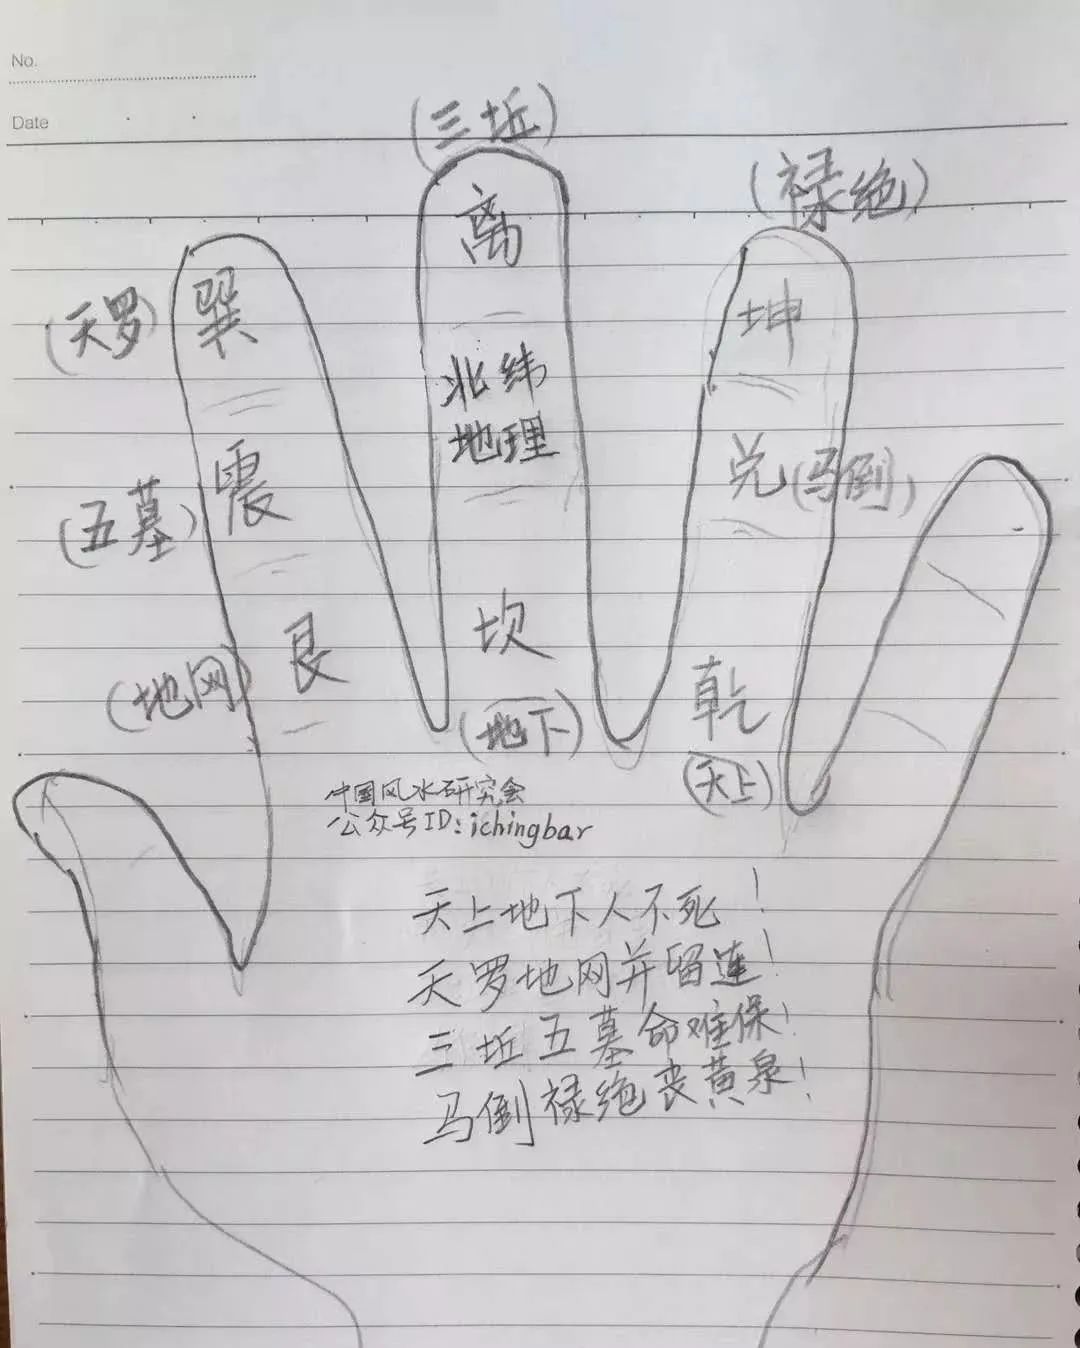 No.
Date
(三坵)
离
(禄绝)
(天罗)
巽
坤
北纬
地理
(五墓)
震
兑(马倒)
(地网)
艮
坎
(地下)
乾
(天上)
中国风水研究会
公众号ID:ichingbar
天上地下人不死!
天罗地网并留连!
三坵五墓命难保!
马倒禄绝丧黄泉!